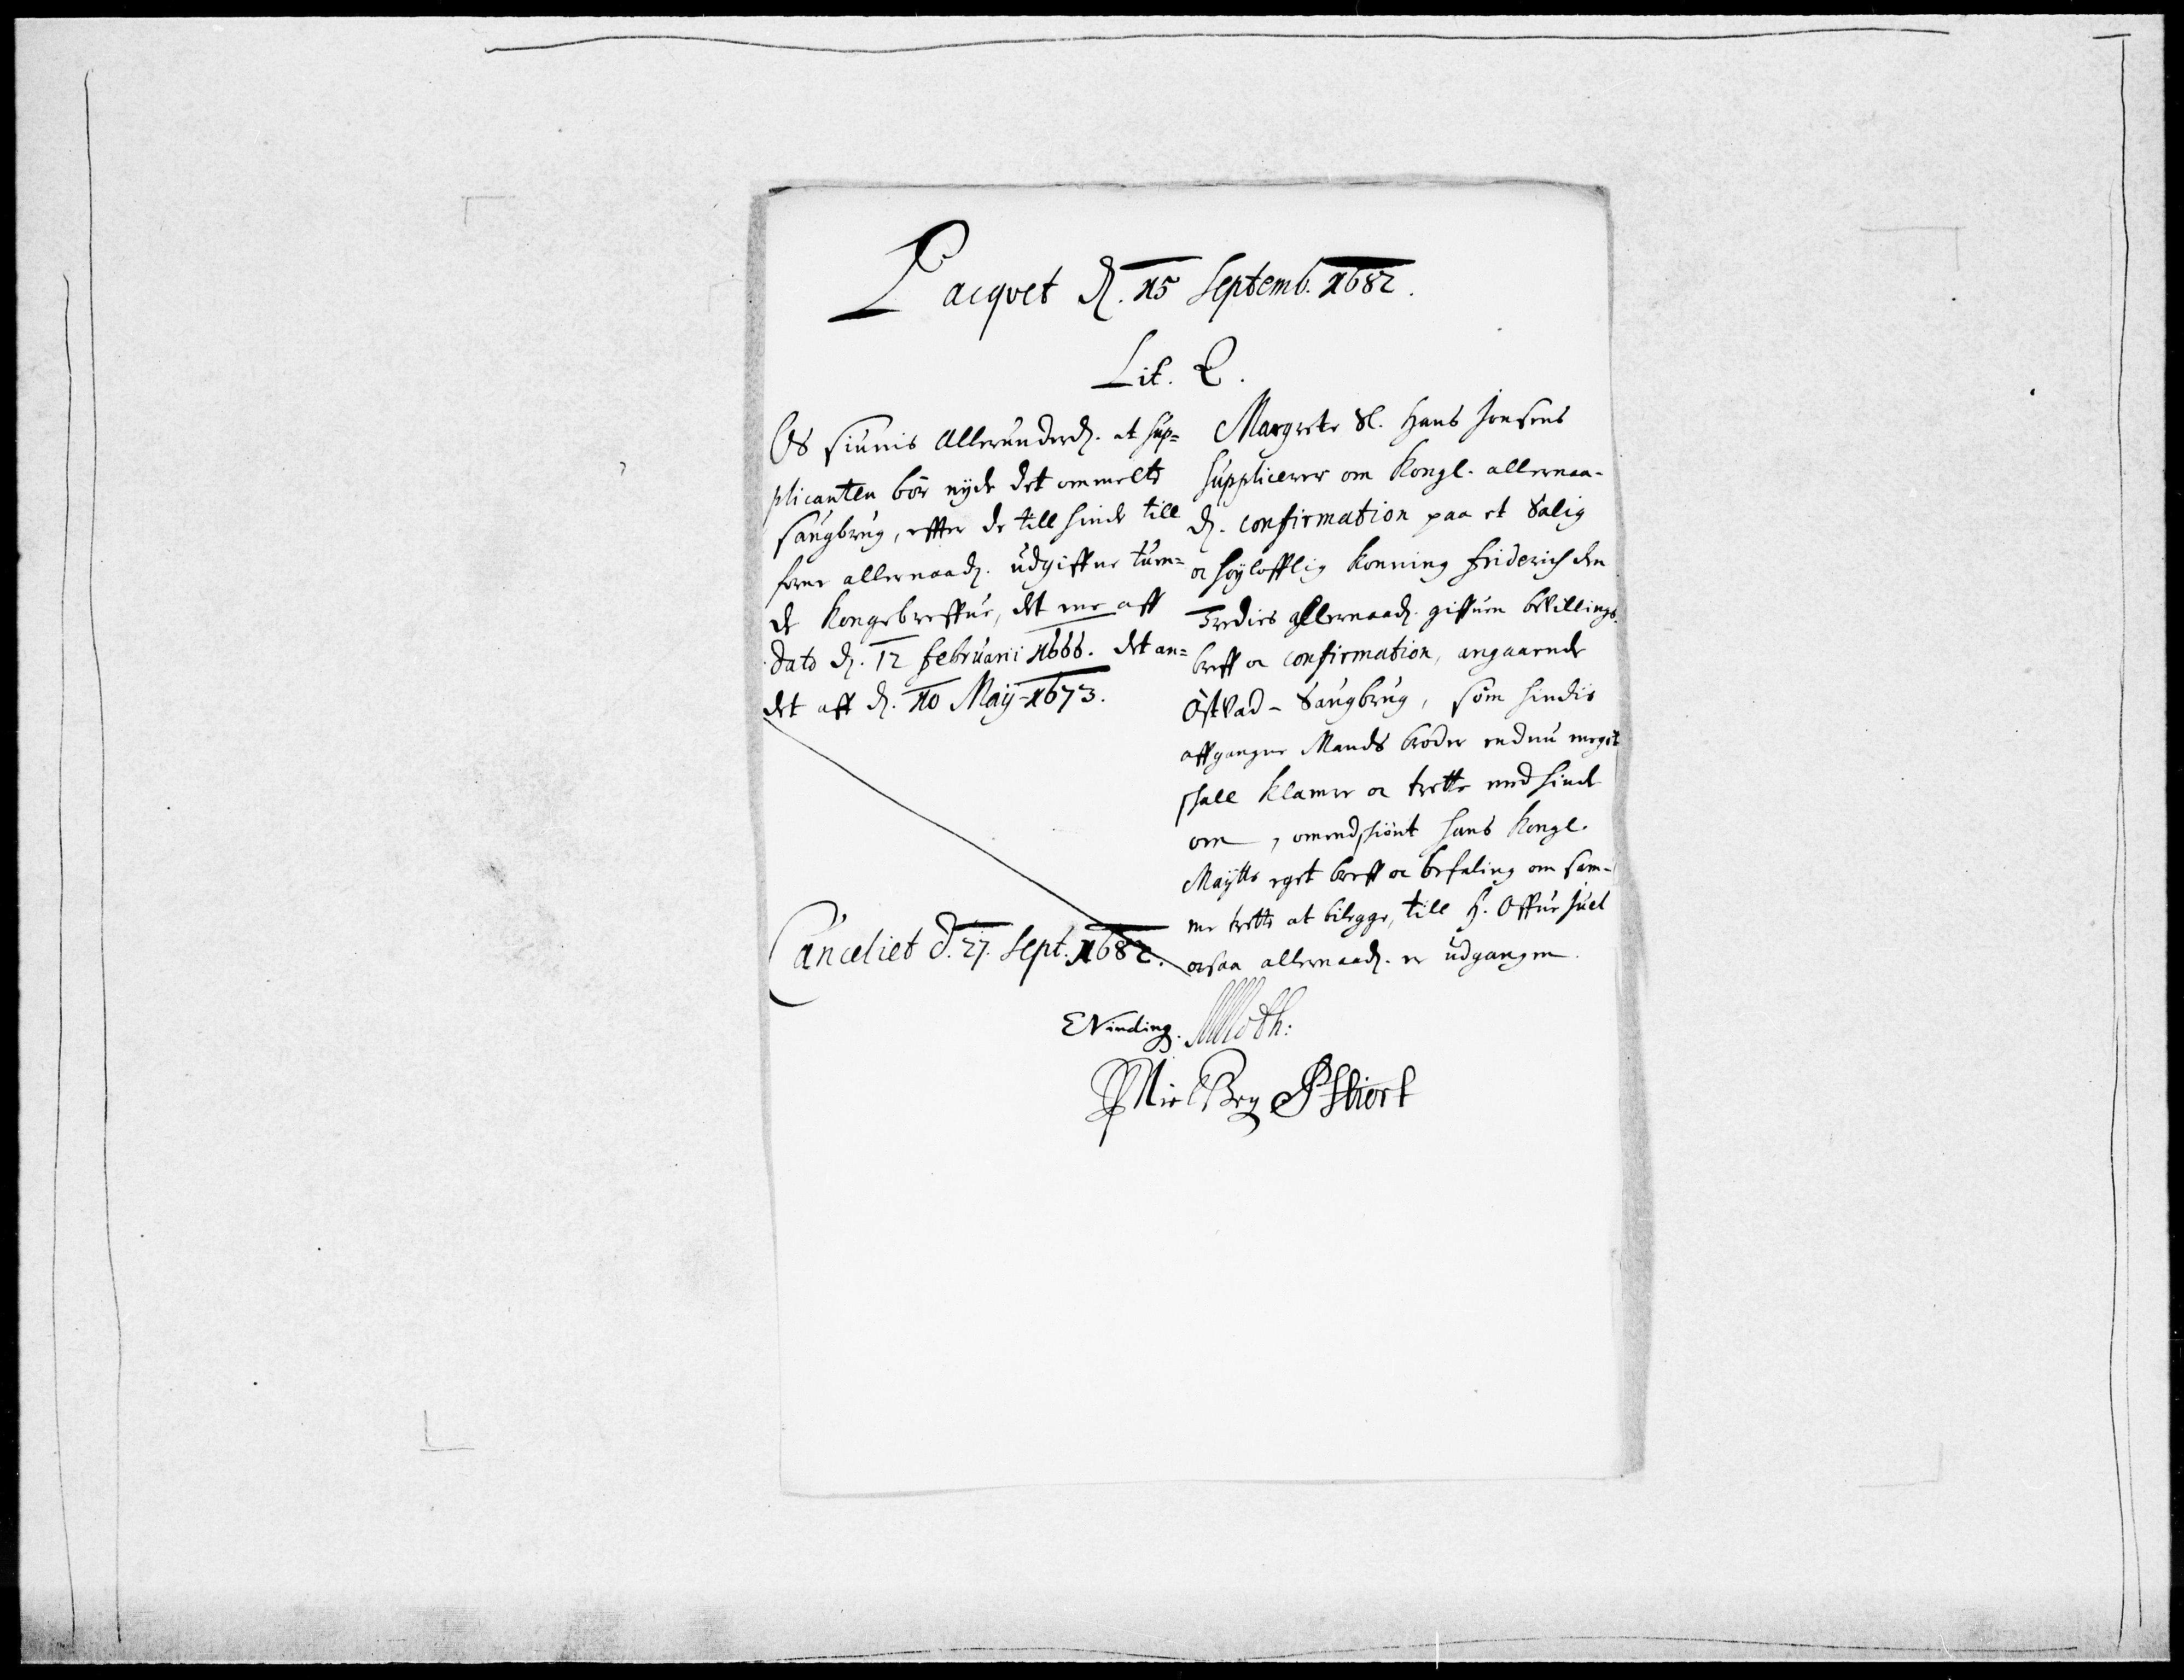 Pacqvet d. 15 Septemb. 1682.
Lit. Q.
Os siunis Allerunderd. at sup=
plicanten bör nyde det ommelte
Saugbrug, effter de till hinde till
forne allernaad. udgiffne tven=
de Kongebreffue, det ene aff
Dato d. 12 februarii 1666. det an=
det aff d. 10 Maij 1673.
Canceliet d. 27. Sept. 1682.
Margrete Sl. Hans Jensens
supplicerer om Kongl. allernaa-
d. confirmation paa et Salig
oc höyloffl­ig Konning friderich den
Tredies allernaad. giffuen bevillings
breff oc confirmation, angaaende
Östvad-Saugbrug, som hindis
affgangne Mands broder endnu meget
skall klamre oc trette med hinde
om, omendskiönt hans Kongl.
Maytts eget breff oc befaling om sam-
me trette at bilegge, till H. Offue Juel
ocsaa allernaad. er udgangen.
EVinding. MMoth:
Nie Brg PSkiort